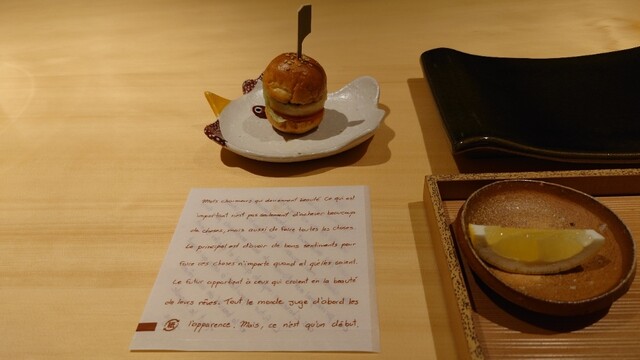 Mais charmeurs qui deviennent beauté. Ce qui est
important n'est pas seulement d'achever beaucoup
de choses, mais aussi de faire toutes les choses.
Le principal est d'avoir de bons sentiments pour
faire ces choses n'importe quand et qui les
Le futur appartient à ceux qui croient en la beauté
de leurs rêves. Tout le monde juge d'abord les
l'apparence. Mais, ce n'est qu'un début.